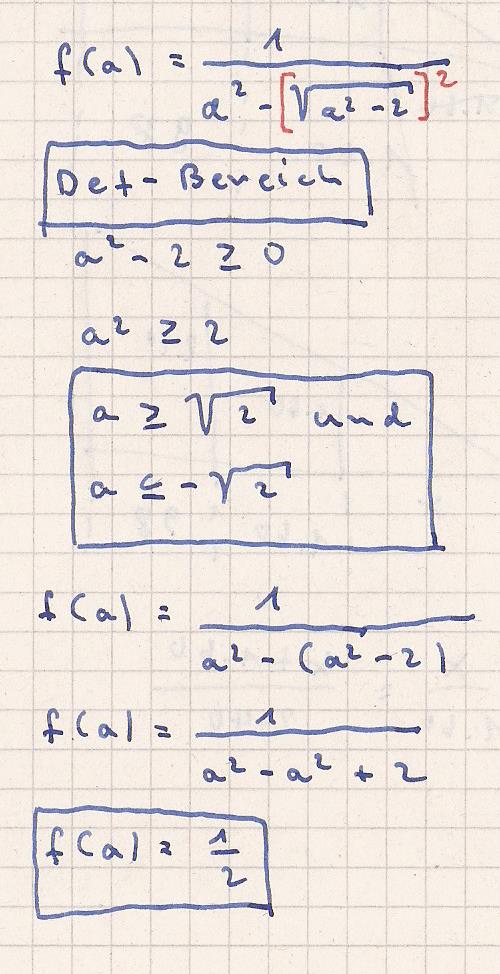 f(a) = 1 / (a² - [√(a² - 2)]²)
Def - Bereich
a² - 2 ≥ 0
a² ≥ 2
a ≥ √2 und
a ≤ -√2
f(a) = 1 / (a² - (a² - 2))
f(a) = 1 / (a² - a² + 2)
f(a) = 1/2